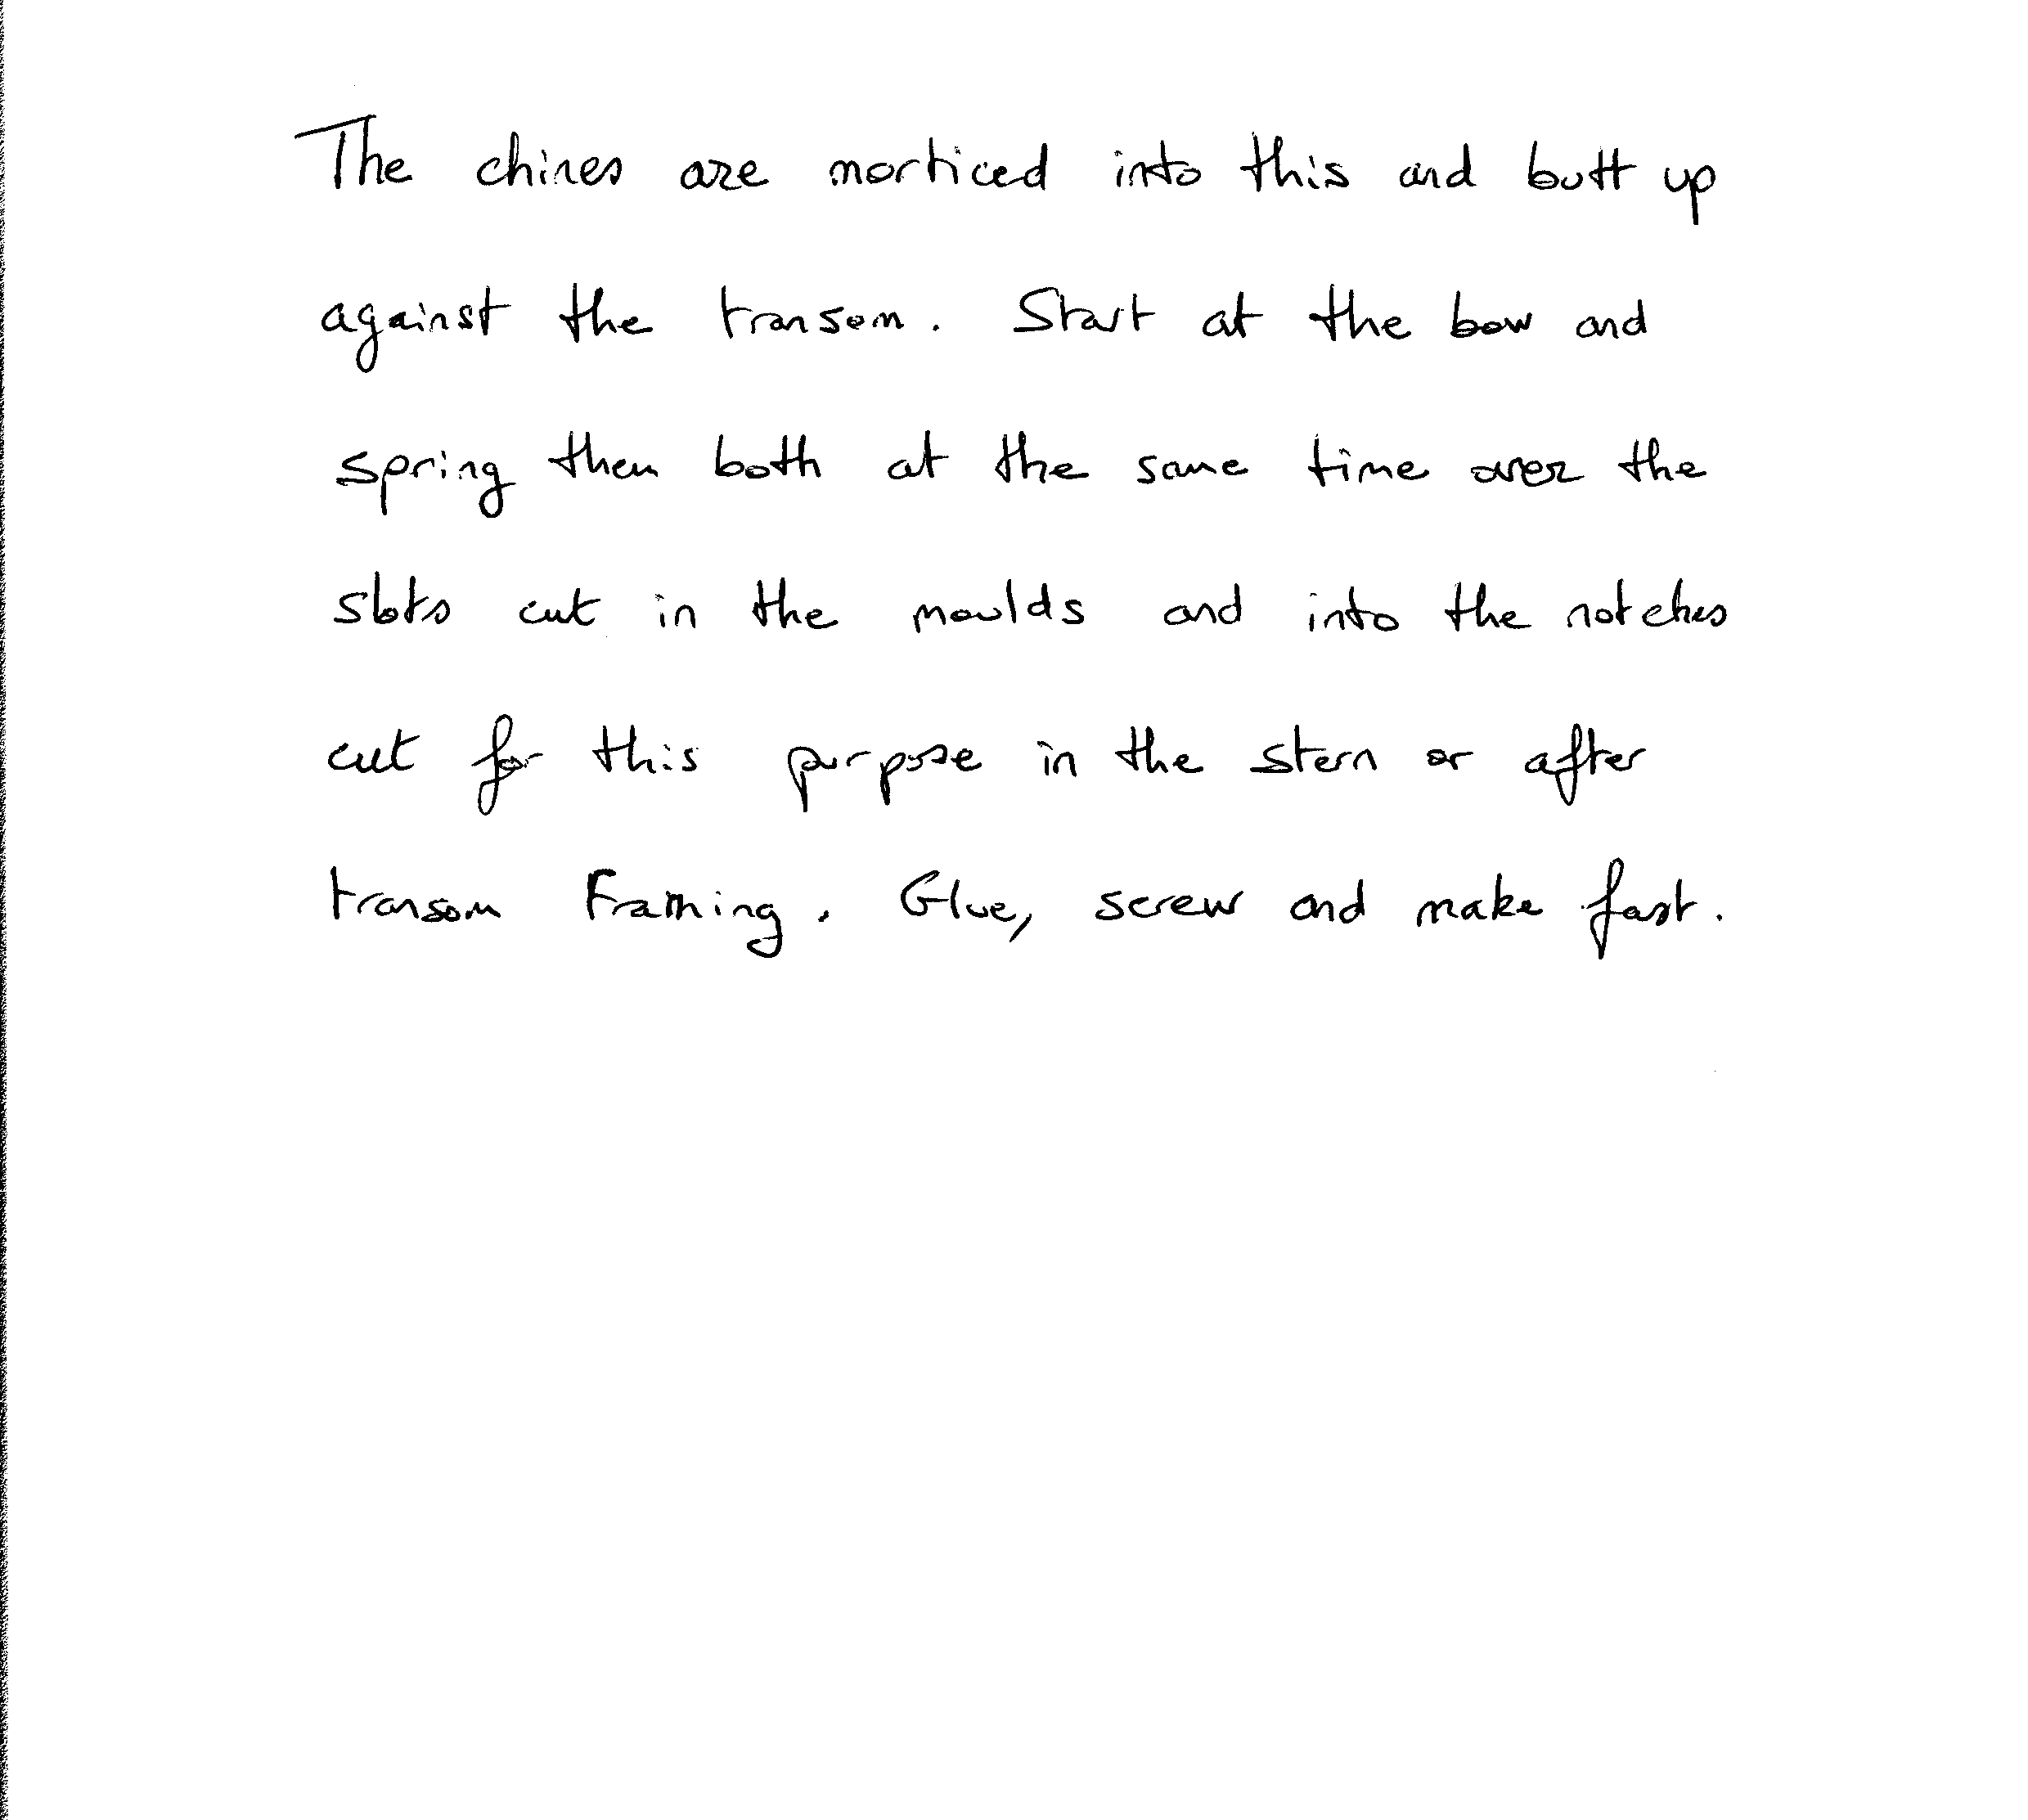 The chines are morticed into this and butt up
against the transom. Start at the bow and
spring them both at the same time over the
slots cut in the moulds and into the notches
cut for this purpose in the stern or after
transom Framing. Glue, screw and make fast.